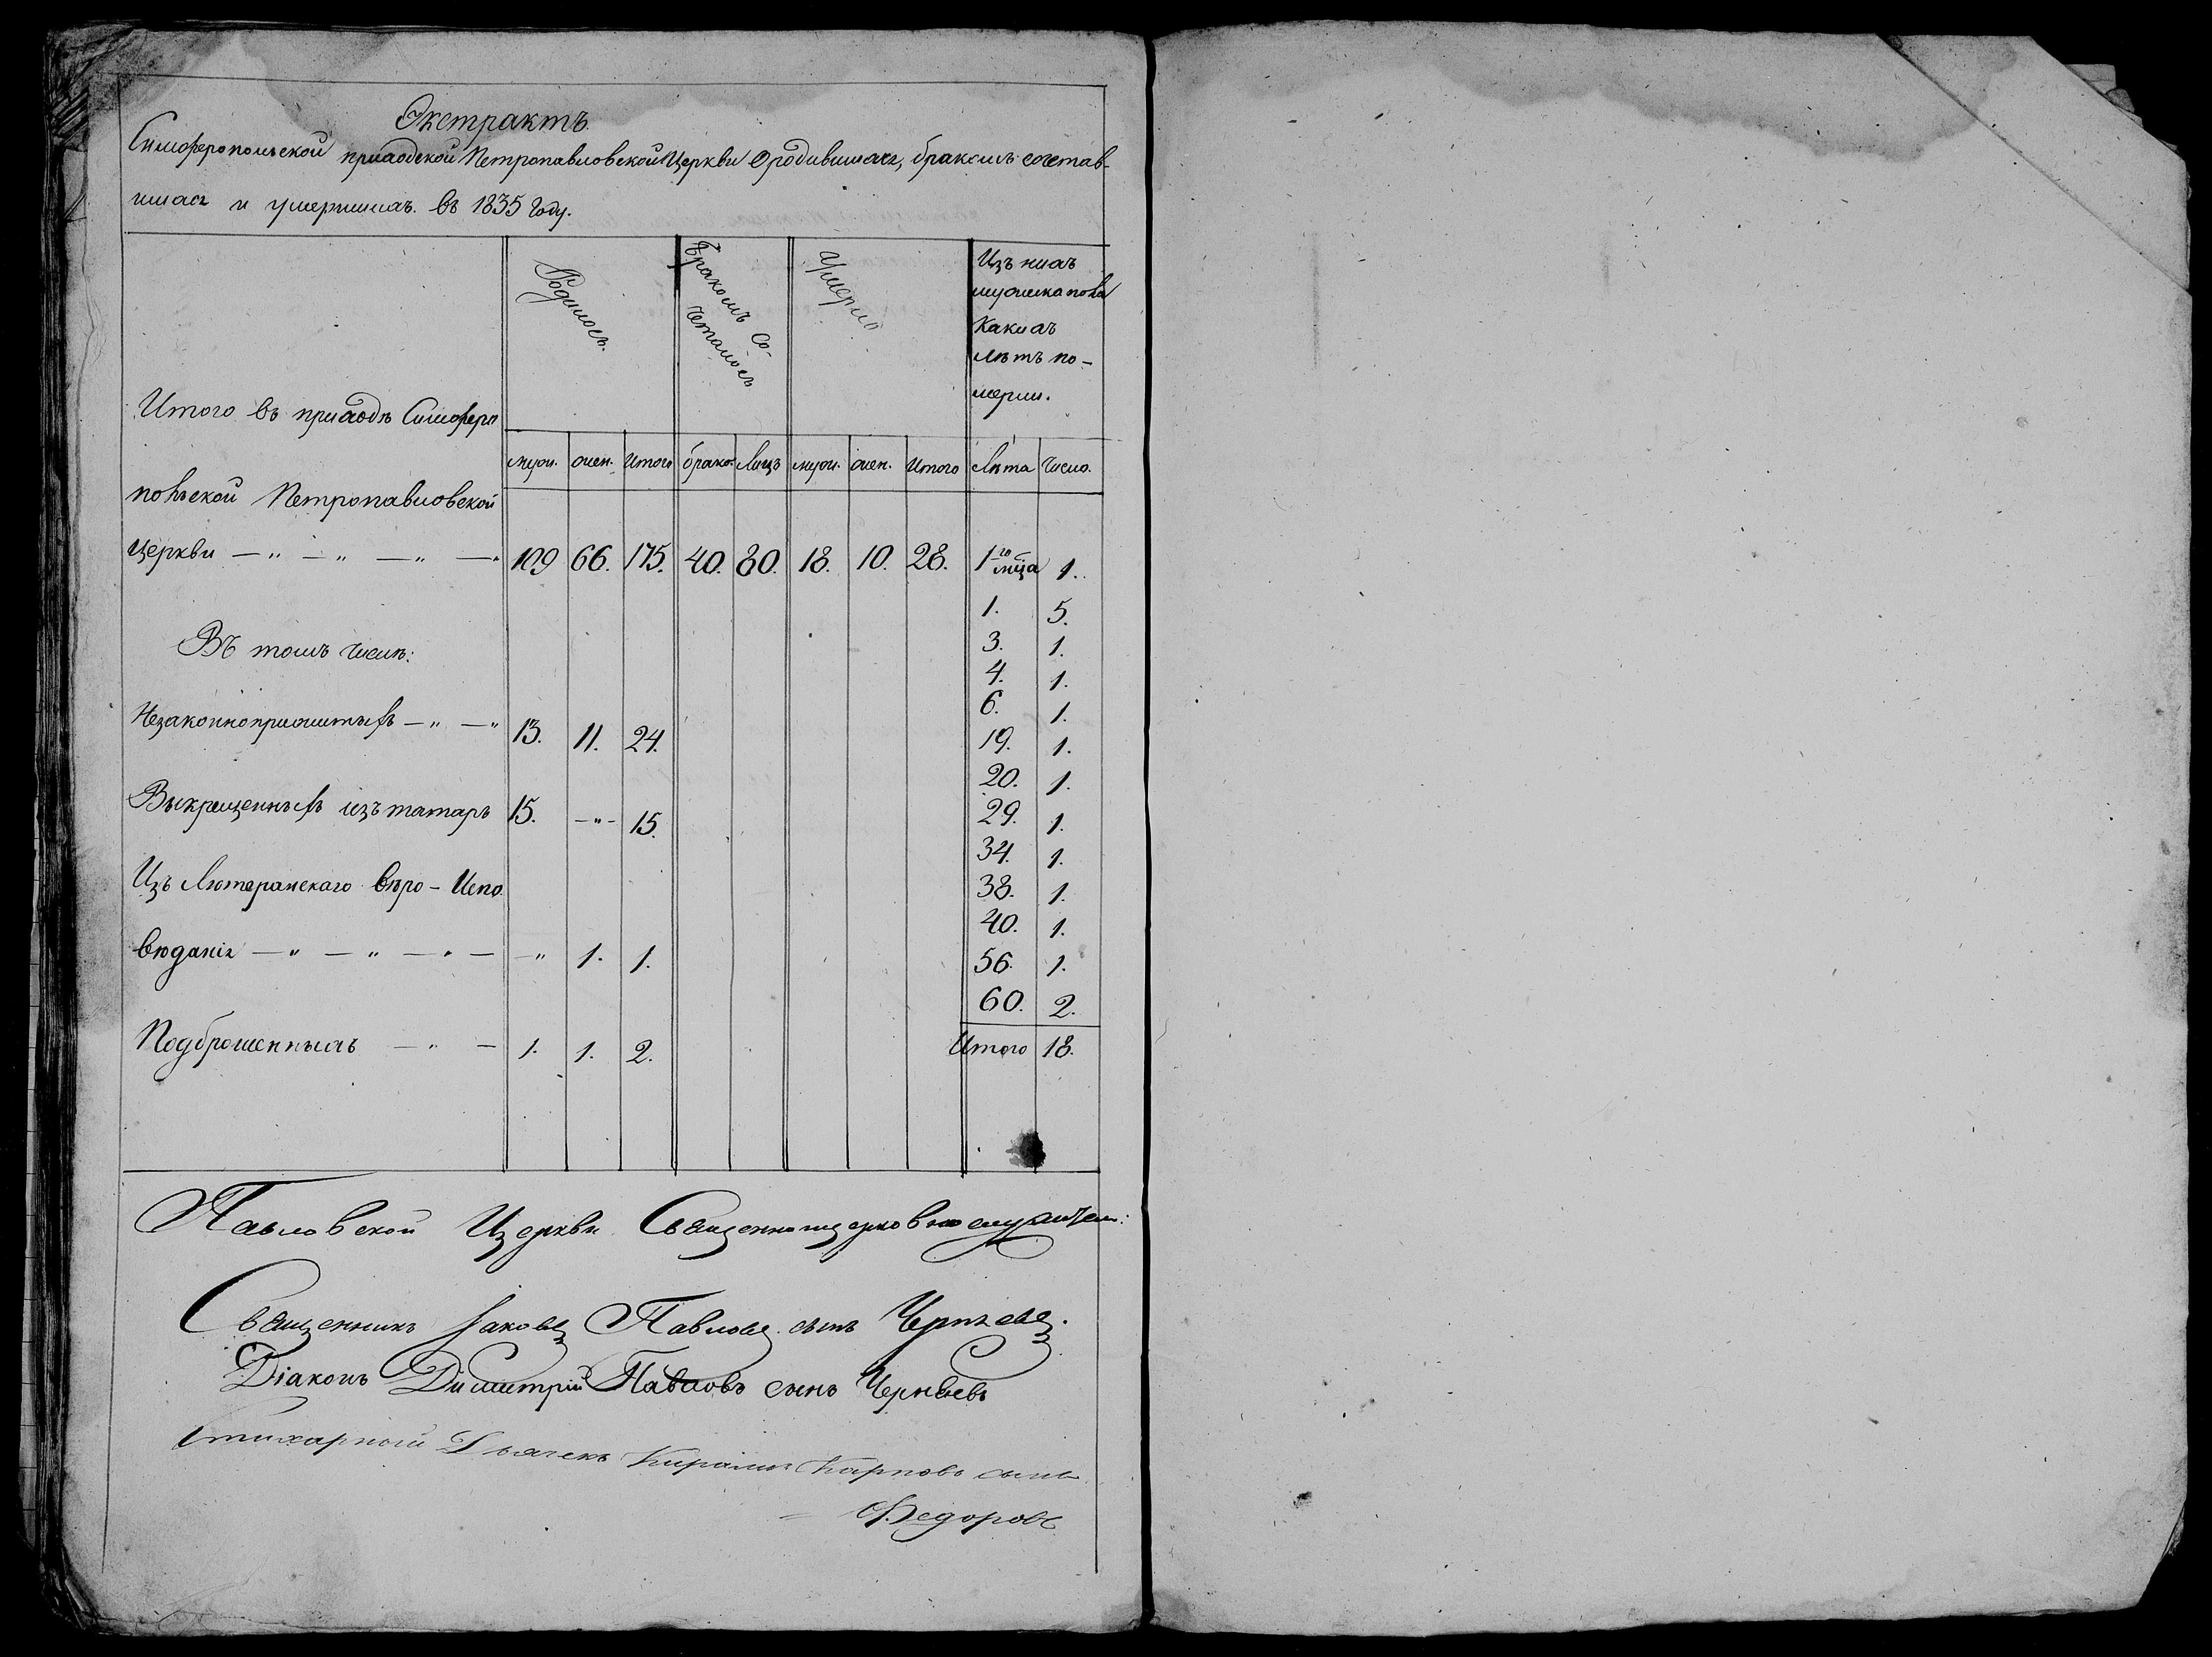 Экстрактъ
Симферопольской приходской Петропавловской Церкви о родившихся, бракомъ сочетав-
шихся и умершихъ въ 1835 Году.
Родилось.
Бракомъ Со-
четалось
Умерло
Изъ нихъ
мужска пола
Какихъ
лѣтъ по-
мерли.
Итого въ приходѣ Симферо
муж. жен. Итого брако. Лицъ муж. жен. Итого Лѣта Число.
польской Петропавловской
Церкви — „ — „ — „ — 109 66. 175. 40. 80. 18. 10. 28. 1го мца 1.
1. 5.
Въ томъ числѣ:
3. 1.
4. 1.
6. 1.
Незаконноприжитыхъ — „ — „ 13. 11. 24.
19. 1.
20. 1.
Выкрещенныхъ изъ татаръ 15. - „ - 15.
29. 1.
34. 1.
Изъ Лютеранскаго вѣро-Испо
38. 1.
40. 1.
вѣданія — „ — „ — „ — „ 1. 1.
56. 1.
60. 2.
Подброшенныхъ — „ — 1. 1. 2.
Итого 18.
Павловской Церкви Священноцерковнослужители:
Священникъ Іаковъ Павловъ сынъ Чернѣевъ.
Діаконъ Димитрій Павловъ сынъ Чернѣевъ
Стихарный Дьячекъ Кирилъ Карповъ сынъ
Федоровъ